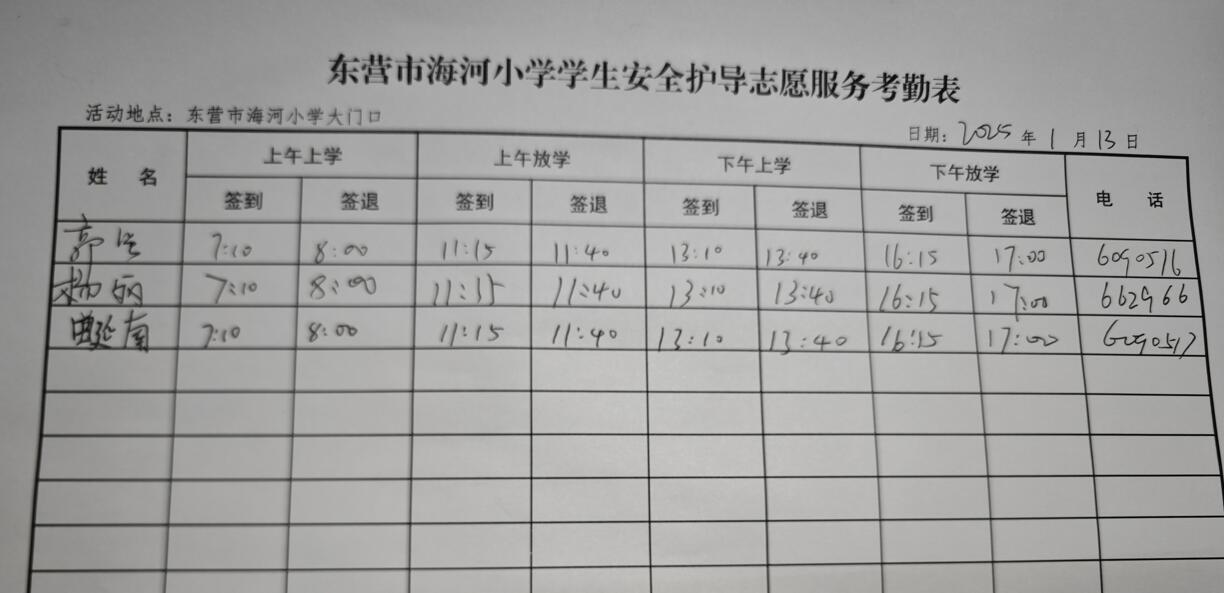 东营市海河小学学生安全护导志愿服务考勤表
活动地点：东营市海河小学大门口
日期：2025年1月13日
姓名 上午上学 上午放学 下午上学 下午放学 电话
签到 签退 签到 签退 签到 签退 签到 签退
郭 7:10 8:00 11:15 11:40 13:10 13:40 16:15 17:00 6090516
杨丽 7:10 8:00 11:15 11:40 13:10 13:40 16:15 17:00 662966
曲延南 7:10 8:00 11:15 11:40 13:10 13:40 16:15 17:00 6090517